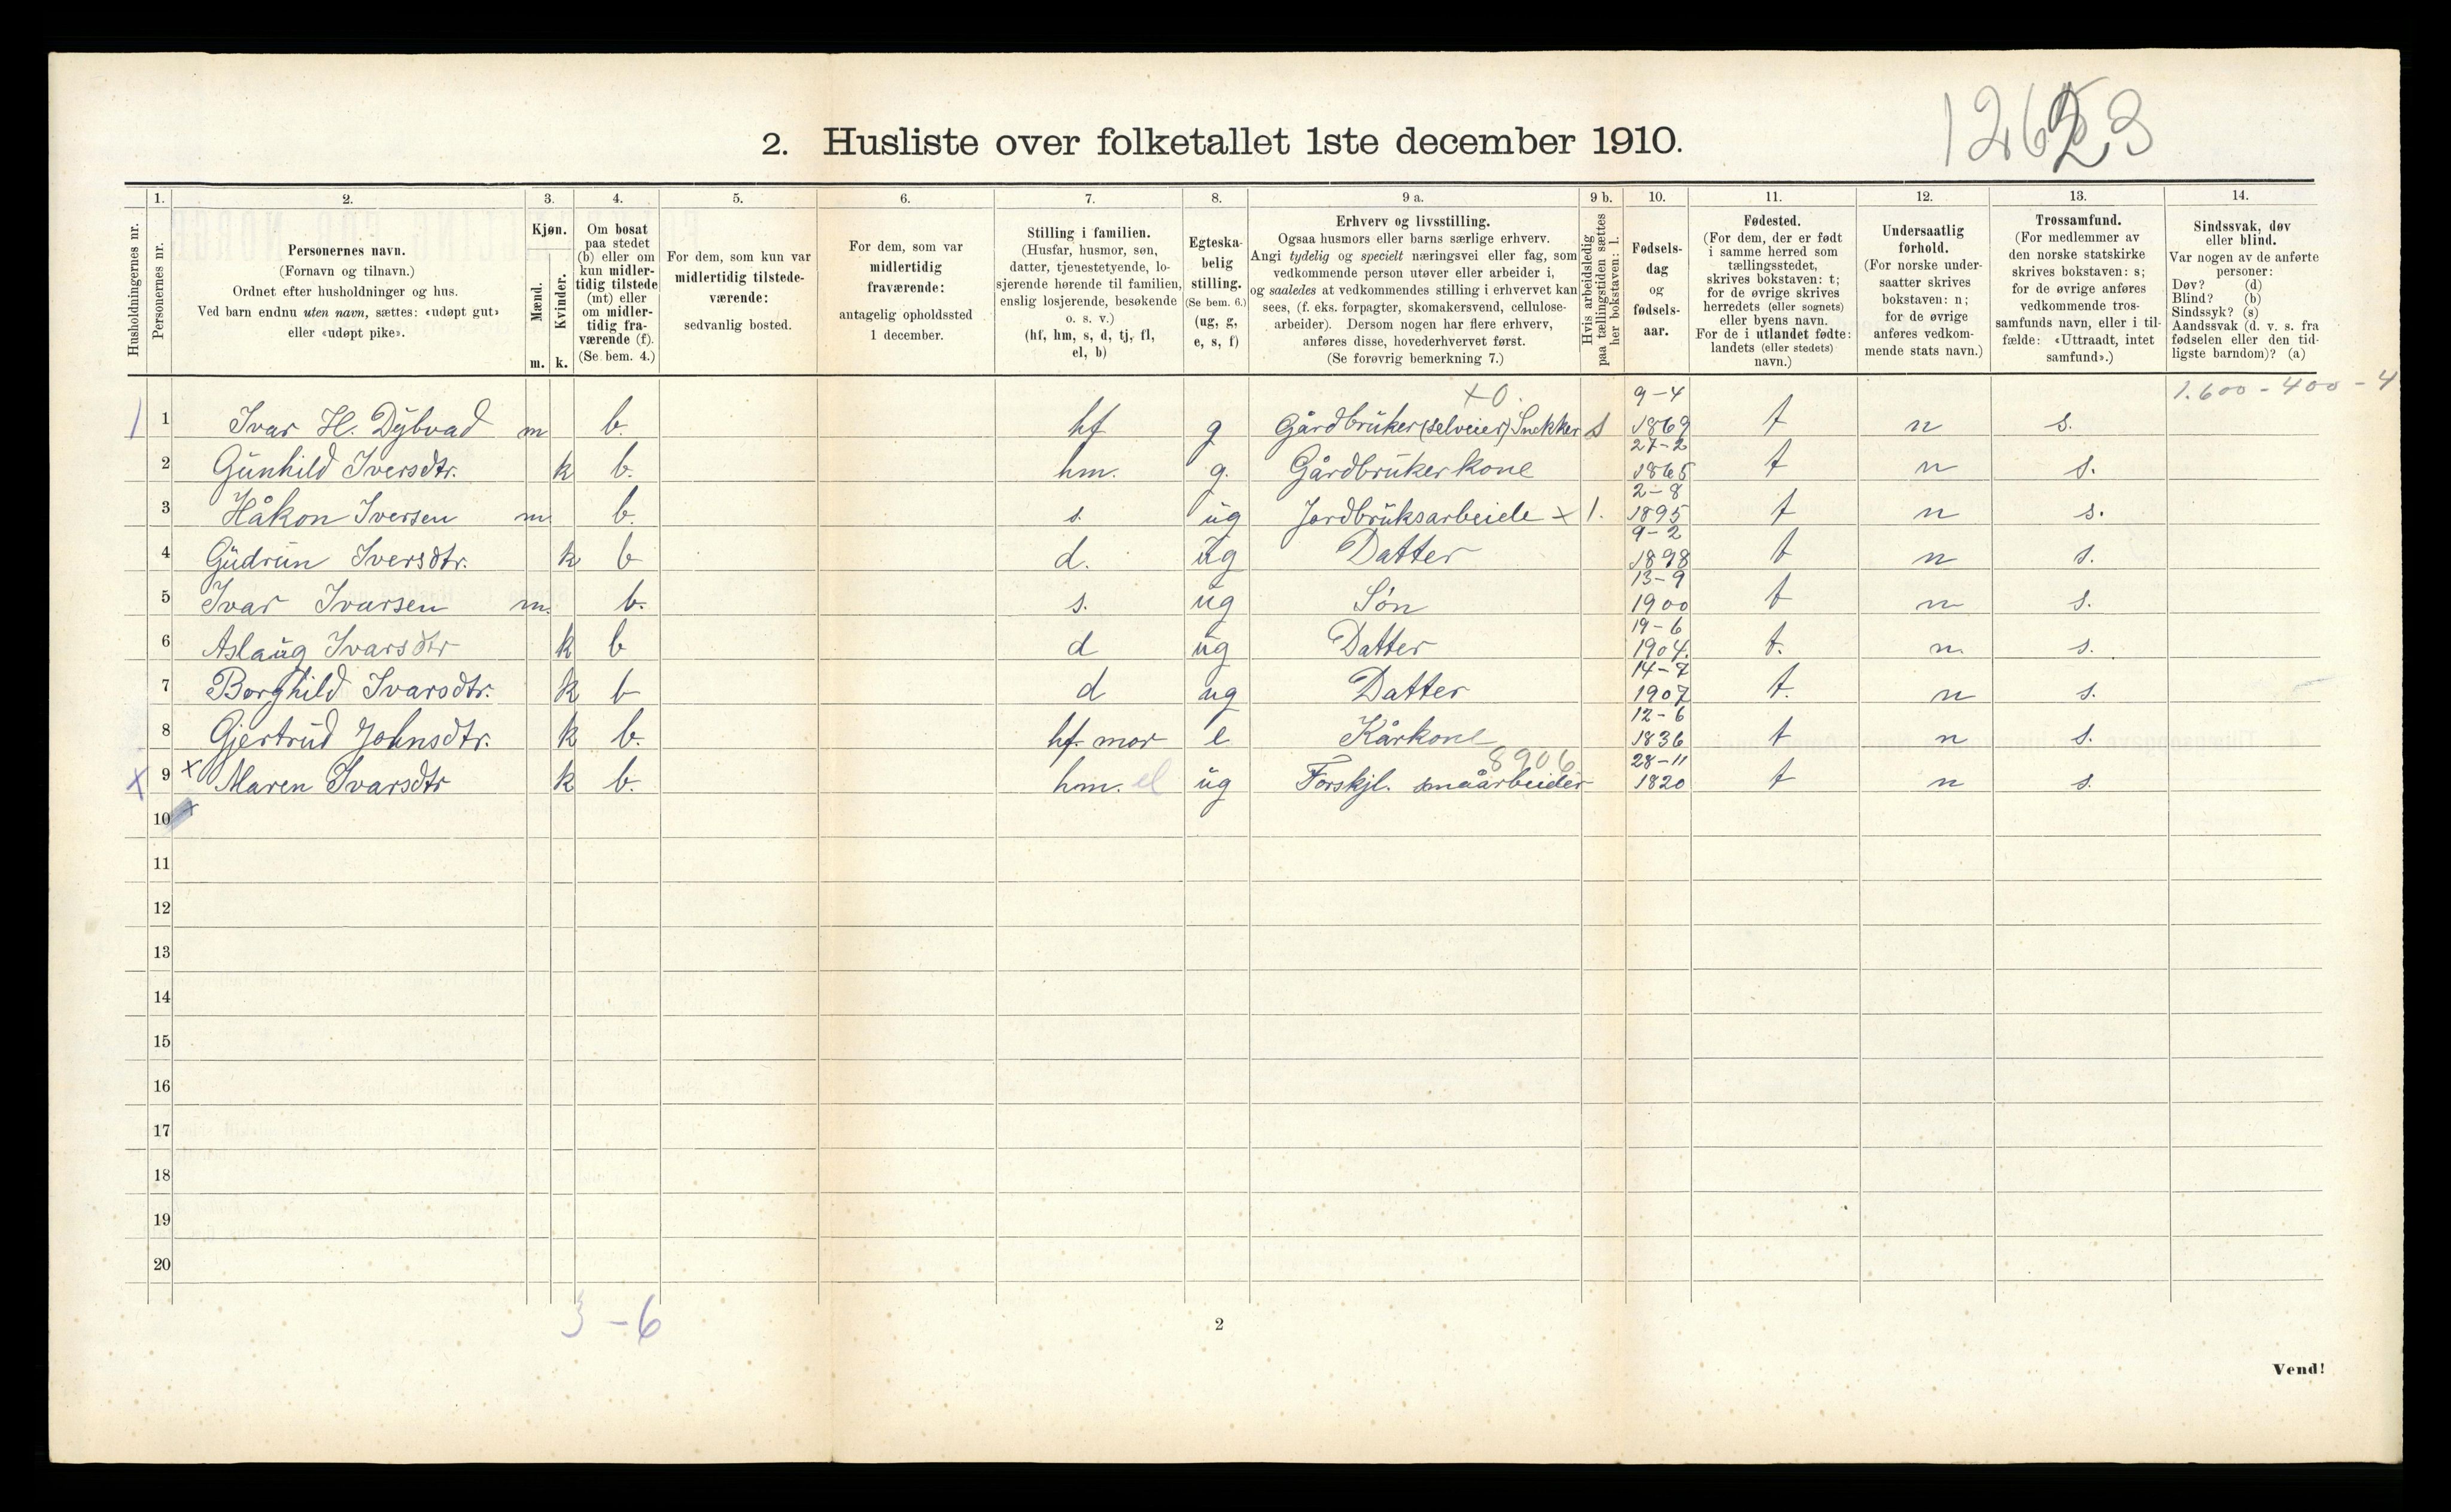 12623
2. Husliste over folketallet 1ste december 1910.
Husholdningernes nr.
1.
Personernes nr.
2.
Personernes navn.
(Fornavn og tilnavn.)
Ordnet efter husholdninger og hus.
Ved barn endnu uten navn, sættes: «udøpt gut»
eller «udøpt pike».
3.
Kjøn.
Mænd.
Kvinder.
m. k.
4.
Om bosat
paa stedet
(b) eller om
kun midler-
tidig tilstede
(mt) eller
om midler-
tidig fra-
værende (f).
(Se bem. 4.)
5.
For dem, som kun var
midlertidig tilstede-
værende:
sedvanlig bosted.
6.
For dem, som var
midlertidig
fraværende:
antagelig opholdssted
1 december.
7.
Stilling i familien.
(Husfar, husmor, søn,
datter, tjenestetyende, lo-
sjerende hørende til familien,
enslig losjerende, besøkende
o. s. v.)
(hf, hm, s, d, tj, fl,
el, b)
8.
Egteska-
belig
stilling.
(Se bem. 6.)
(ug, g,
e, s, f)
9 a.
Erhverv og livsstilling.
Ogsaa husmors eller barns særlige erhverv.
Angi tydelig og specielt næringsvei eller fag, som
vedkommende person utøver eller arbeider i,
og saaledes at vedkommendes stilling i erhvervet kan
sees, (f. eks. forpagter, skomakersvend, cellulose-
arbeider). Dersom nogen har flere erhverv,
anføres disse, hovederhvervet først.
(Se forøvrig bemerkning 7.)
9 b.
Hvis arbeidsledig
paa tællingstiden sættes
her bokstaven: l.
10.
Fødsels-
dag
og
fødsels-
aar.
11.
Fødested.
(For dem, der er født
i samme herred som
tællingsstedet,
skrives bokstaven: t;
for de øvrige skrives
herredets (eller sognets)
eller byens navn.
For de i utlandet fødte:
landets (eller stedets)
navn.)
12.
Undersaatlig
forhold.
(For norske under-
saatter skrives
bokstaven: n;
for de øvrige
anføres vedkom-
mende stats navn.)
13.
Trossamfund.
(For medlemmer av
den norske statskirke
skrives bokstaven: s;
for de øvrige anføres
vedkommende tros-
samfunds navn, eller i til-
fælde: «Uttraadt, intet
samfund».)
14.
Sindssvak, døv
eller blind.
Var nogen av de anførte
personer:
Døv? (d)
Blind? (b)
Sindssyk? (s)
Aandssvak (d. v. s. fra
fødselen eller den tid-
ligste barndom)? (a)
+0. 1.600 - 400 - 4
1 1 Ivar H. Dybvad m b. hf g Gårdbruker (selveier) Snekker s 9-4 1869 t n s.
2 Gunhild Iversdtr. k b. hm. g. Gårdbrukerkone 27-2 1865 t n s.
3 Håkon Iversen m. b. s. ug Jordbruksarbeide x l. 2-8 1895 t n s.
4 Gudrun Iversdtr. k b d. ug Datter 9-2 1898 t n s.
5 Ivar Ivarsen m. b. s. ug Søn 13-9 1900 t n s.
6 Aslaug Ivarsdtr k b d ug Datter 19-6 1904. t. n. s.
7 Borghild Ivarsdtr. k b d ug Datter 14-7 1907 t. n s.
8 Gjertrud Johnsdtr. k b. hf. mor e Kårkone 12-6 1836 t n s.
8906
x 9 x Maren Ivarsdtr k b. hm. el ug Forskjl. småarbeider 28-11 1820 t n s.
10
11
12
13
14
15
16
17
18
19
20
3 - 6
2
Vend!